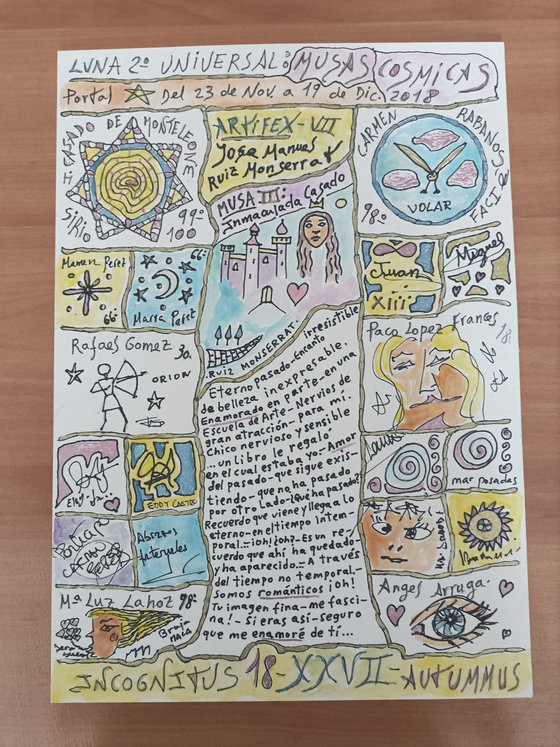 LUNA 2ª UNIVERSAL: MUSAS COSMICAS
Portal Del 23 de Nov. a 19 de Dic. 2018
I. CASADO DE MONTELEONE
SIRIO
99ª
100
ARTIFEX-VII
Jose Manuel
Ruiz Monserrat
MUSA III:
Inmaculada Casado
RUIZ MONSERRAT.
CARMEN RABANOS FACI
98ª
VOLAR
Mamen Peret
66.
66.
Marta Petit
Juan
XIII
Miguel
Rafael Gomez 30.
ORION
Paco Lopez Frances 18.
EDDY CASTRO
Abrazos
Laterales
mar posadas
Mª Luz Lahoz 98ª
Bruja
Angel Arruga
irresistible
Eterno pasado-encanto
de belleza inexpresable.
Enamorado en parte-en una
Escuela de Arte-Nervios y
gran atracción-para mí.
Chico nervioso y sensible
...un libro le regaló
en el cual estaba yo-Amor
del pasado-que sigue exis-
tiendo-que no ha pasado
por otro Lado-¿Que ha pasado?
Recuerdo que viene y llega a lo
eterno-en el tiempo intem-
poral.-¡oh! ¿oh?-Es un re-
cuerdo que ahí ha quedado-
y ha aparecido.-A través
del tiempo no temporal-
somos románticos ¡oh!
Tu imagen fina-me fasci-
na!-Si eras así-seguro
que me enamoré de ti...
INCOGNITUS 18-XXVII-AUTUMMUS